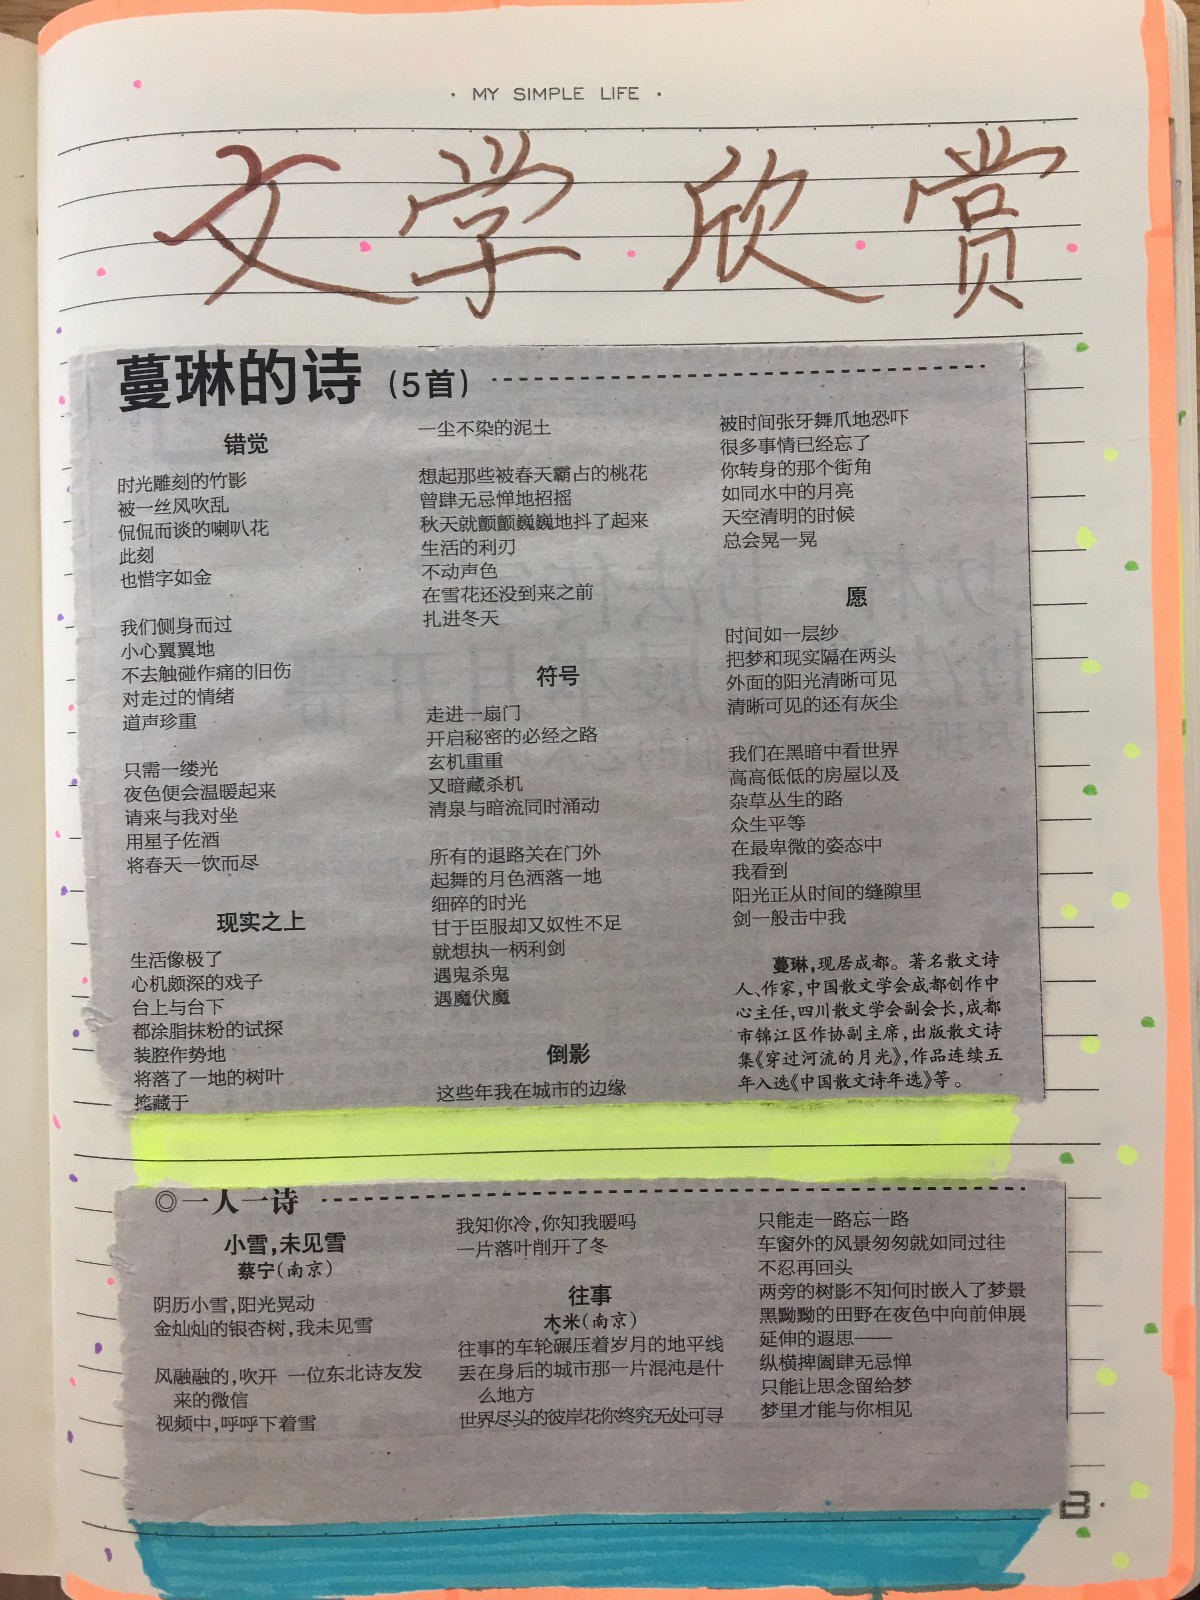 · MY SIMPLE LIFE ·
文学欣赏
蔓琳的诗（5首）
错觉
时光雕刻的竹影
被一丝风吹乱
侃侃而谈的喇叭花
此刻
也惜字如金
我们侧身而过
小心翼翼地
不去触碰作痛的旧伤
对走过的情绪
道声珍重
只需一缕光
夜色便会温暖起来
请来与我对坐
用星子佐酒
将春天一饮而尽
现实之上
生活像极了
心机颇深的戏子
台上与台下
都涂脂抹粉的试探
装腔作势地
将落了一地的树叶
掩藏于
一尘不染的泥土
想起那些被春天霸占的桃花
曾肆无忌惮地招摇
秋天就颤颤巍巍地抖了起来
生活的利刃
不动声色
在雪花还没到来之前
扎进冬天
符号
走进一扇门
开启秘密的必经之路
玄机重重
又暗藏杀机
清泉与暗流同时涌动
所有的退路关在门外
起舞的月色洒落一地
细碎的时光
甘于臣服却又奴性不足
就想执一柄利剑
遇鬼杀鬼
遇魔伏魔
倒影
这些年我在城市的边缘
被时间张牙舞爪地恐吓
很多事情已经忘了
你转身的那个街角
如同水中的月亮
天空清明的时候
总会晃一晃
愿
时间如一层纱
把梦和现实隔在两头
外面的阳光清晰可见
清晰可见的还有灰尘
我们在黑暗中看世界
高高低低的房屋以及
杂草丛生的路
众生平等
在最卑微的姿态中
我看到
阳光正从时间的缝隙里
剑一般击中我
蔓琳，现居成都。著名散文诗
人、作家，中国散文学会成都创作中
心主任，四川散文学会副会长，成都
市锦江区作协副主席，出版散文诗
集《穿过河流的月光》，作品连续五
年入选《中国散文诗年选》等。
◎一人一诗
小雪，未见雪
蔡宁（南京）
阴历小雪，阳光晃动
金灿灿的银杏树，我未见雪
风融融的，吹开 一位东北诗友发
来的微信
视频中，呼呼下着雪
我知你冷，你知我暖吗
一片落叶削开了冬
往事
木米（南京）
往事的车轮碾压着岁月的地平线
丢在身后的城市那一片混沌是什
么地方
世界尽头的彼岸花你终究无处可寻
只能走一路忘一路
车窗外的风景匆匆就如同过往
不忍再回头
两旁的树影不知何时嵌入了梦景
黑黝黝的田野在夜色中向前伸展
延伸的遐思——
纵横捭阖肆无忌惮
只能让思念留给梦
梦里才能与你相见